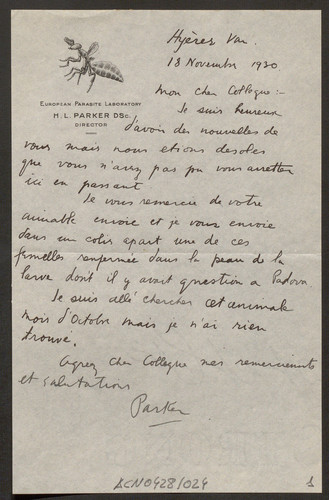 Hyères Var.
18 Novembre 1930
EUROPEAN PARASITE LABORATORY
H. L. PARKER DSC.
DIRECTOR
Mon cher Collegue:-
Je suis heureux
d'avoir des nouvelles de
vous mais nous etions desolés
que vous n'avez pas pu vous arretter
ici en passant.
Je vous remercie de votre
aimable envoie et je vous envoie
dans un colis apart une de ces
femelles renfermée dans la peau de la
larve dont il y avait question a Padova.
Je suis allé chercher cet animale
mois d'Octobre mais je n'ai rien
trouve.
Agrez Cher Collegue mes remerciements
et salutations
Parker
ACN0428/024
1